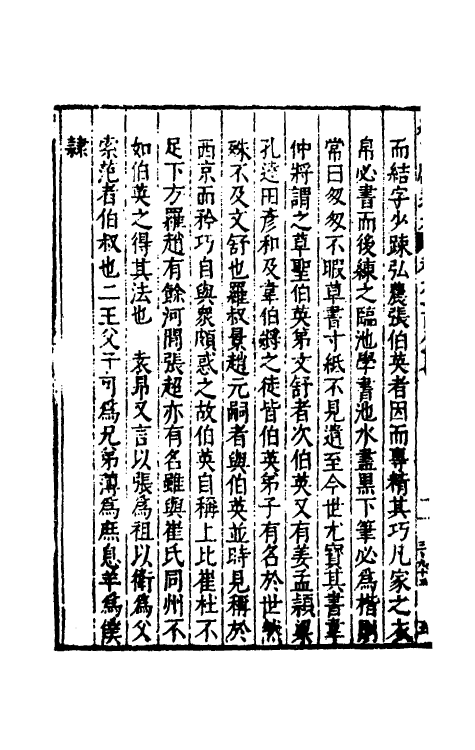 而結字少疎弘農張伯英者因而專精其巧凡家之衣
帛必書而後練之臨池學書池水盡黑下筆必爲楷則
常曰匆匆不暇草書寸紙不見遺至今世尤寶其書韋
仲將謂之草聖伯英弟文舒者次伯英又有姜孟穎梁
孔逵田彦和及韋伯將之徒皆伯英弟子有名於世然
殊不及文舒也羅叔景趙元嗣者與伯英並時見稱於
西京而矜巧自與衆頗惑之故伯英自稱上比崔杜不
足下方羅趙有餘河間張超亦有名雖與崔氏同州不
如伯英之得其法也　袁昂又言以張爲祖以衛爲父
索范者伯叔也二王父子可爲兄弟薄爲庶息羊爲僕
隸